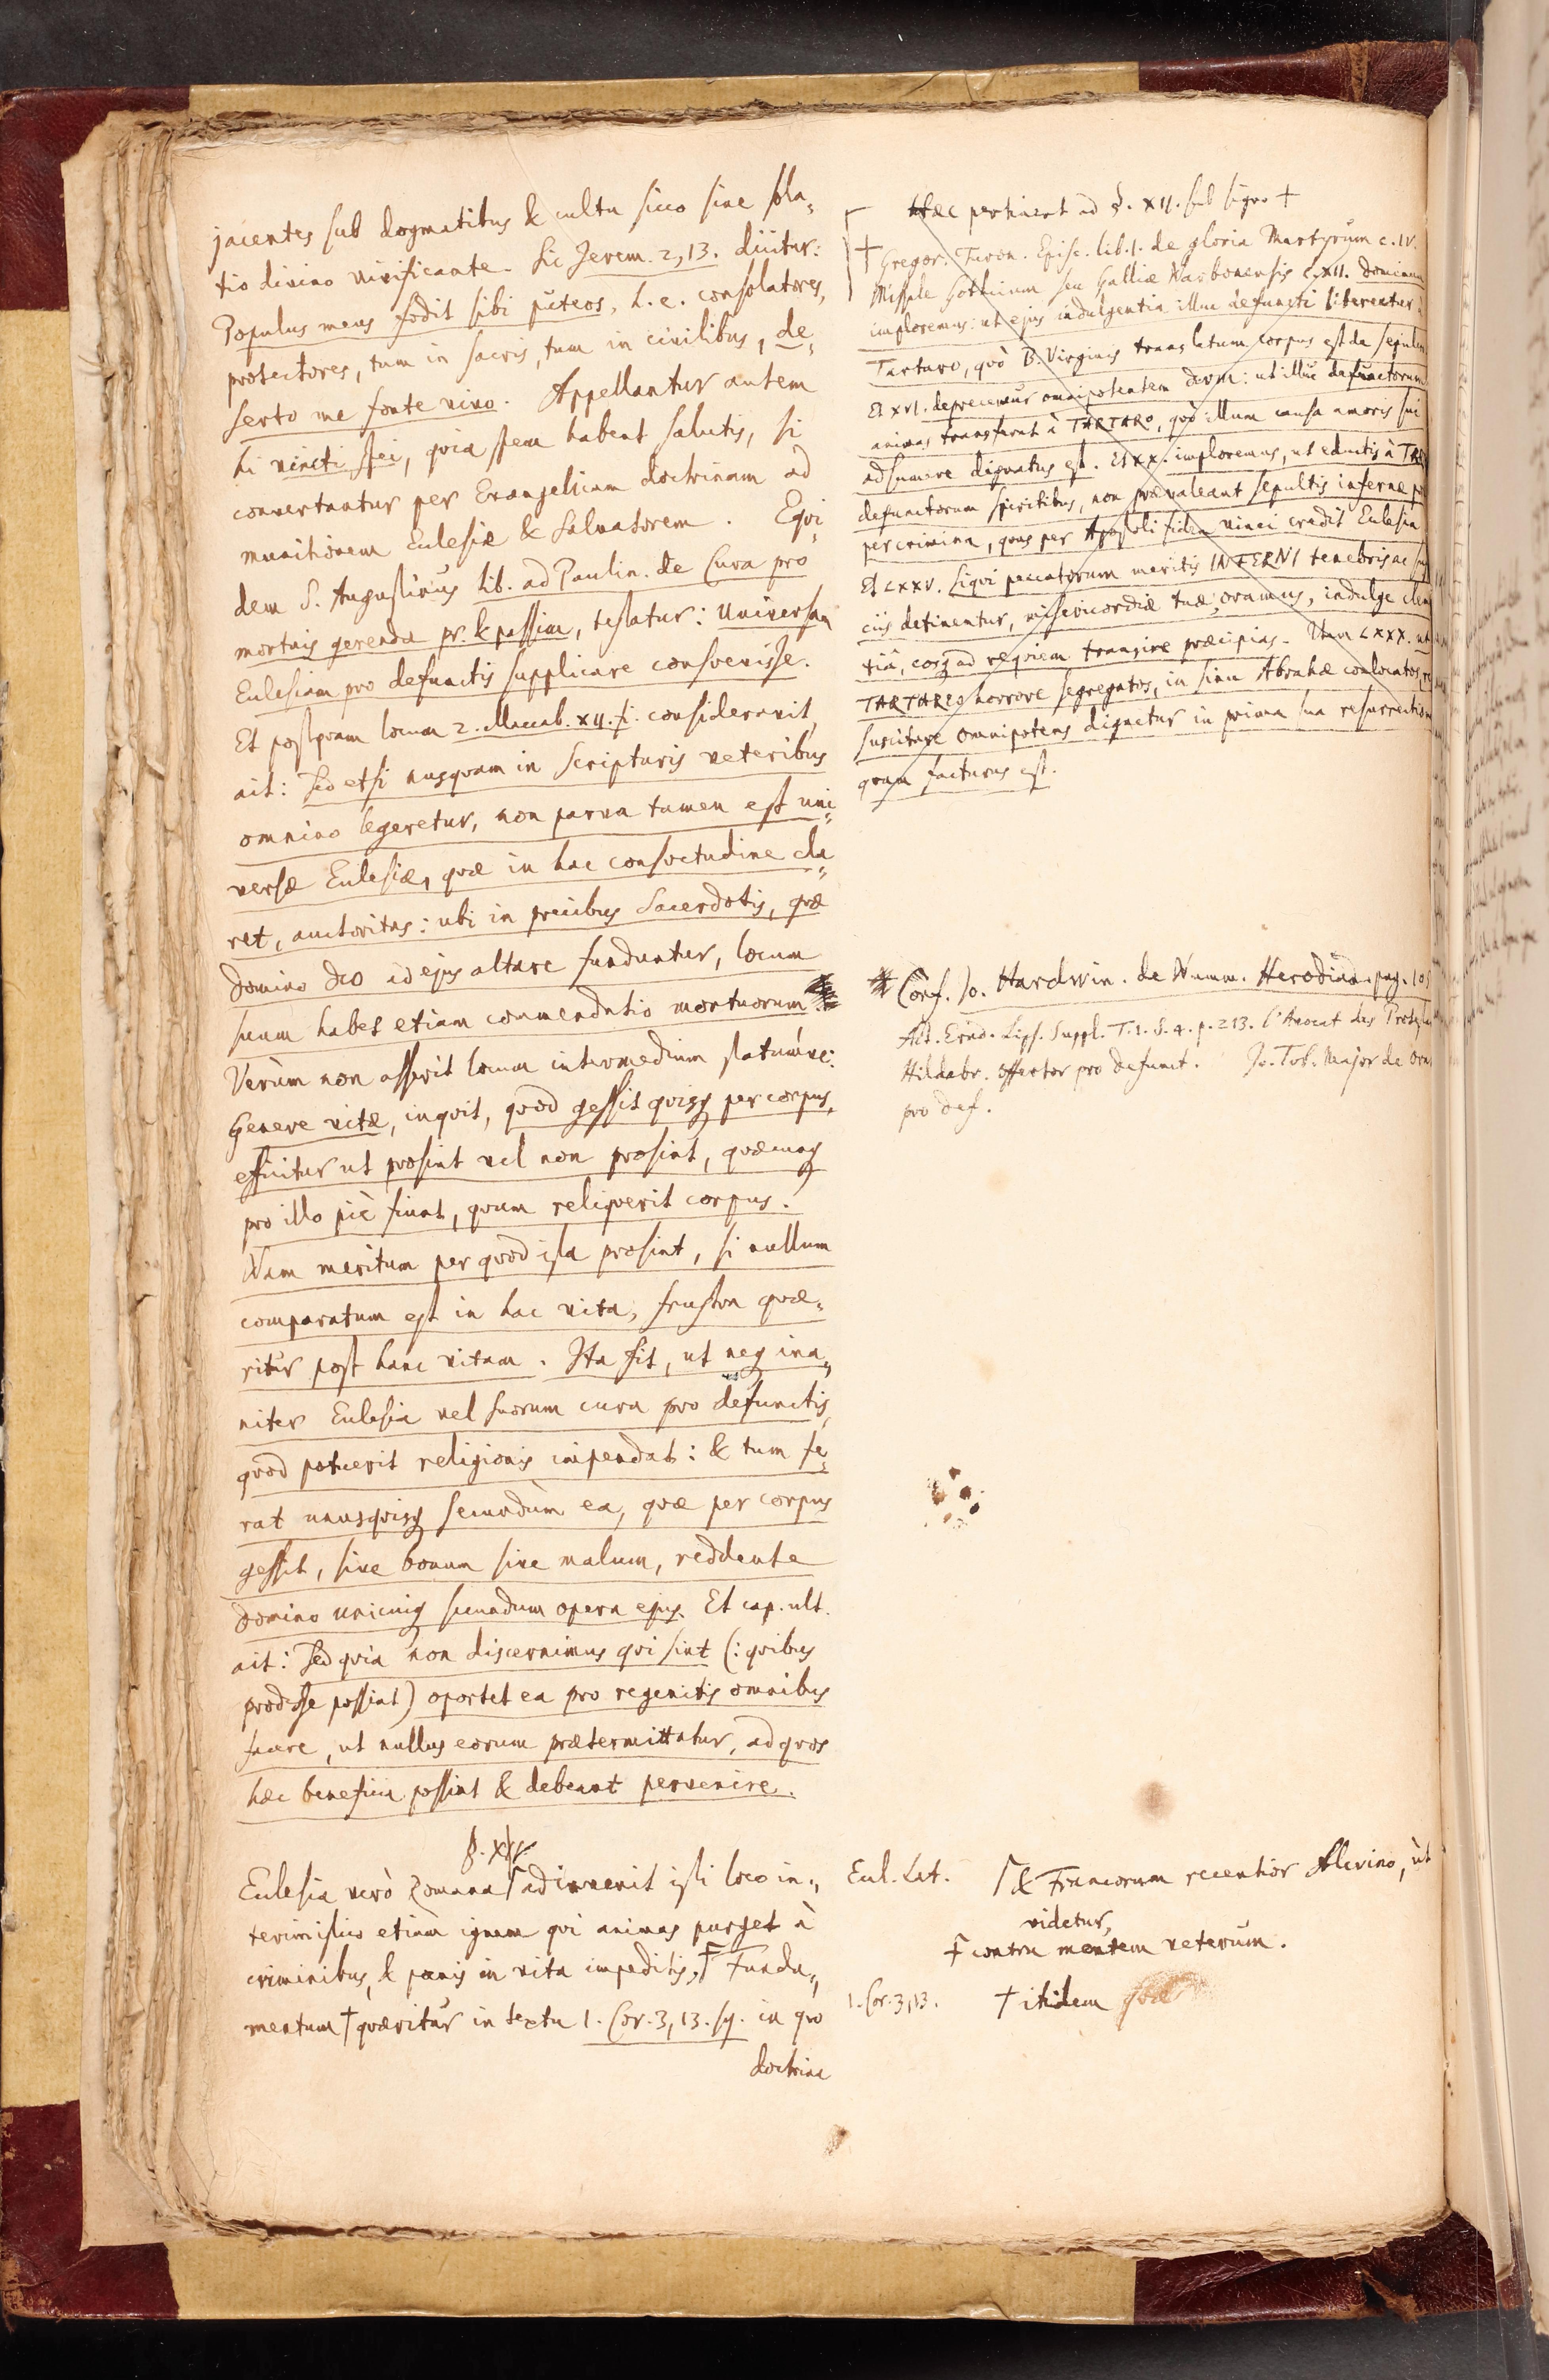 jacentes sub dogmatibus & cultu sicco sine sola„
tio divino vivificante. Sic Jerem. 2, 13. dicitur:
Populus meus fodit sibi puteos, h. e. consolatores,
protectores, tum in sacris, tum in civilibus, de„
serto me fonte vivo. Appellantur autem
hi vincti spei, quia spem habent salutis, si
convertantur per Evangelicam doctrinam ad
munitionem Ecclesiæ & Salvatorem. Eqvi„
dem S. Augustinus lib. ad Paulin. de Cura pro
mortuis gerenda pr. & passim, testatur: Universam
Ecclesiam pro defunctis supplicare consvevisse.
Et postqvam locum 2. Maccab. XII. f. consideravit,
ait: Sed etsi nusqvam in Scripturis veteribus
omnino legeretur, non parva tamen est uni„
versæ Ecclesiæ, qvæ in hac consvetudine cla„
ret, auctoritas: ubi in precibus Sacerdotis, qvæ
Domino Deo ad ejus altare funduntur, locum
suum habet etiam commendatio mortuorum.
Verùm non asserit locum intermedium statúve:
Genere vitæ, inqvit, qvod gessit qvisq per corpus,
efficitur ut prosint vel non prosint, qvæcunq
pro illo piè fiunt, qvum reliqverit corpus.
Nam meritum per qvod ista prosint, si nullum
comparatum est in hac vita, frustra qvæ„
ritur post hanc vitam. Ita fit, ut neq ina„
niter Ecclesia vel suorum cura pro defunctis,
qvod potuerit religionis impendat: & tum fe„
rat unusqvisq secundùm ea, qvæ per corpus
gessit, sive bonum sive malum, reddente
Domino unicuiq secundum opera ejus. Et cap. ult.
ait: Sed qvia non discernimus qvi sint (: qvibus
prodesse possint) oportet ea pro regenitis omnibus
facere, ut nullus eorum prætermittatur, ad qvos
hæc beneficia possint & debeant pervenire.
§. XIV
Ecclesia verò Romana ⌈ adinvenit isti loco in„
terimistico etiam ignem qvi animas purget à
criminibus, & pœnis in vita impeditis, Ŧ Funda„
mentum † qværitur in textu 1. Cor. 3, 13. sq. in qvo
doctrinæ
Hæc pertinent ad §. XII. sub signo †
† Gregor. Turon. Episc. lib. 1. de gloria Martyrum c. IV.
Missale Gothicum seu Galliæ Narbonensis c. XII. Dominum
imploremus: ut ejus indulgentia illuc defuncti liberentur à
Tartaro, qvò B. Virginis translatum corpus est de sepulcro
Et XVI. deprecemur omnipotentem Deum: ut illuc defunctorum
animas transferat à TARTARO, qvò illum causa amoris sui
adsumere dignatus est. Et XX. imploremus, ut eductis à TAR
defunctorum spiritibus, non prævaleant sepultis infernæ
per crimina, qvas per Apostoli fidem vinci credit Ecclesia
Et LXXV. Siqvi peccatorum meritis INFERNI tenebris ac
ciis detinentur, misericordiæ tuæ, oramus, indulge clem
tiâ, eosq ad reqviem transire præcipias. Item LXXX. ut
TARTAREO horrore segregatos, in sinu Abrahæ conlocatos,
suscitare omnipotens dignetur in prima sua resurrection
qvam facturus est.
Conf. Jo. Hardvin. de Numm. Herodiad. pag. 10
Act. Erud. Lips. Suppl. T. 1. S. 4. p. 213. l'Avocat des Protes
Hildebr. Offertor pro defunct. Jo. Tob. Major de Orat
pro def.
Eccl. Lat. ⌈ & Francorum recentior Alcvino, ùt
videtur,
Ŧ contra mentem veterum.
1. Cor. 3, 13. † itidem